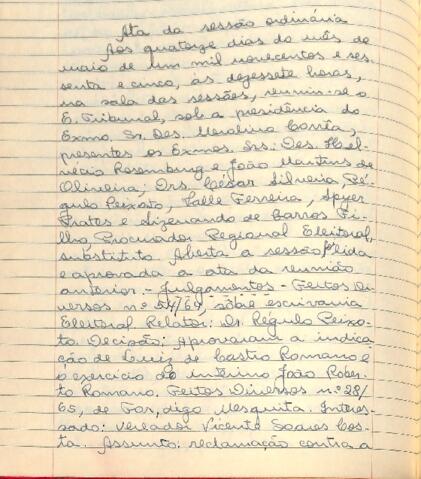 Ata da sessão ordinária
Aos quatorze dias do mês de
maio de um mil novecentos e ses-
senta e cinco, às dezessete horas,
na sala das sessões, reuniu-se o
E. Tribunal, sob a presidência do
Exmo. Sr. Des. Merolino Corrêa,
presentes os Exmos. Srs: Des. Hel-
vécio Rosemburg e João Martins de
Oliveira; Drs. César Silveira, Ré-
gulo Peixoto, Valle Ferreira, Spyer
Prates e Lizenando de Barros Fi-
lho, Procurador Regional Eleitoral,
substituto. Aberta a sessão, foi lida
e aprovada a ata da reunião
anterior. - Julgamentos - Feitos Di-
versos nº 54/64, sobre escrivania
Eleitoral. Relator: Dr. Régulo Peixo-
to. Decisão: Aprovaram a indica-
ção de Luiz de Castro Romano e
o exercício do interino João Rober-
to Romano. Feitos Diversos nº 28/
65, de For, digo Mesquita. Interes-
sado: Vereador Vicente Soares Cos-
ta. Assunto: reclamação contra a